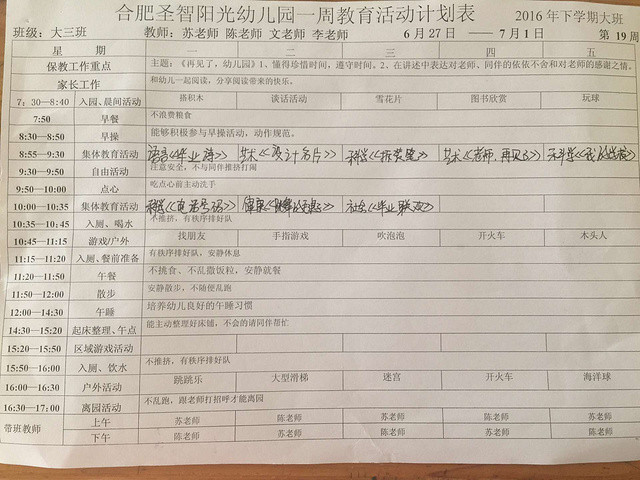 合肥圣智阳光幼儿园一周教育活动计划表 2016年下学期大班
班级：大三班 教师：苏老师 陈老师 文老师 李老师 6月27日——7月1日 第19周
星 期 一 二 三 四 五
保教工作重点 主题：《再见了，幼儿园》1、懂得珍惜时间，遵守时间。2、在讲述中表达对老师、同伴的依依不舍和对老师的感谢之情。
家长工作 和幼儿一起阅读，分享阅读带来的快乐。
7：30—8:40 入园、晨间活动 搭积木 谈话活动 雪花片 图书欣赏 玩球
7:50 早餐 不浪费粮食
8:30—8:50 早操 能够积极参与早操活动，动作规范。
8:55—9:30 集体教育活动 语言《毕业诗》 艺术《设计名片》 科学《 》 艺术《老师，再见了》
9:30—9:50 自由活动 注意安全，不与同伴推挤打闹
9:50—10:00 点心 吃点心前主动洗手
10:00—10:35 集体教育活动 科学《电话号码》 社会《毕业联欢》
10:35—10:45 入厕、喝水 不推挤，有秩序排好队
10:45—11:15 游戏/户外 找朋友 手指游戏 吹泡泡 开火车 木头人
11:15—11:20 入厕、餐前准备 有秩序排好队，安静休息
11:20—11:50 午餐 不挑食、不乱撒饭粒，安静就餐
11:50—12:00 散步 安静散步，不随便乱跑
12:00—14:30 午睡 培养幼儿良好的午睡习惯
14:30—15:20 起床整理、午点 能主动整理好床铺，不会的请同伴帮忙
15:20—15:50 区域游戏活动
15:50—16:00 入厕、饮水 不推挤，有秩序排好队
16:00—16:30 户外活动 跳跳乐 大型滑梯 迷宫 开火车 海洋球
16:30—17:00 离园活动 不乱跑，跟老师打招呼才能离园
带班教师 上午 苏老师 陈老师 苏老师 陈老师 苏老师
下午 陈老师 苏老师 陈老师 苏老师 陈老师